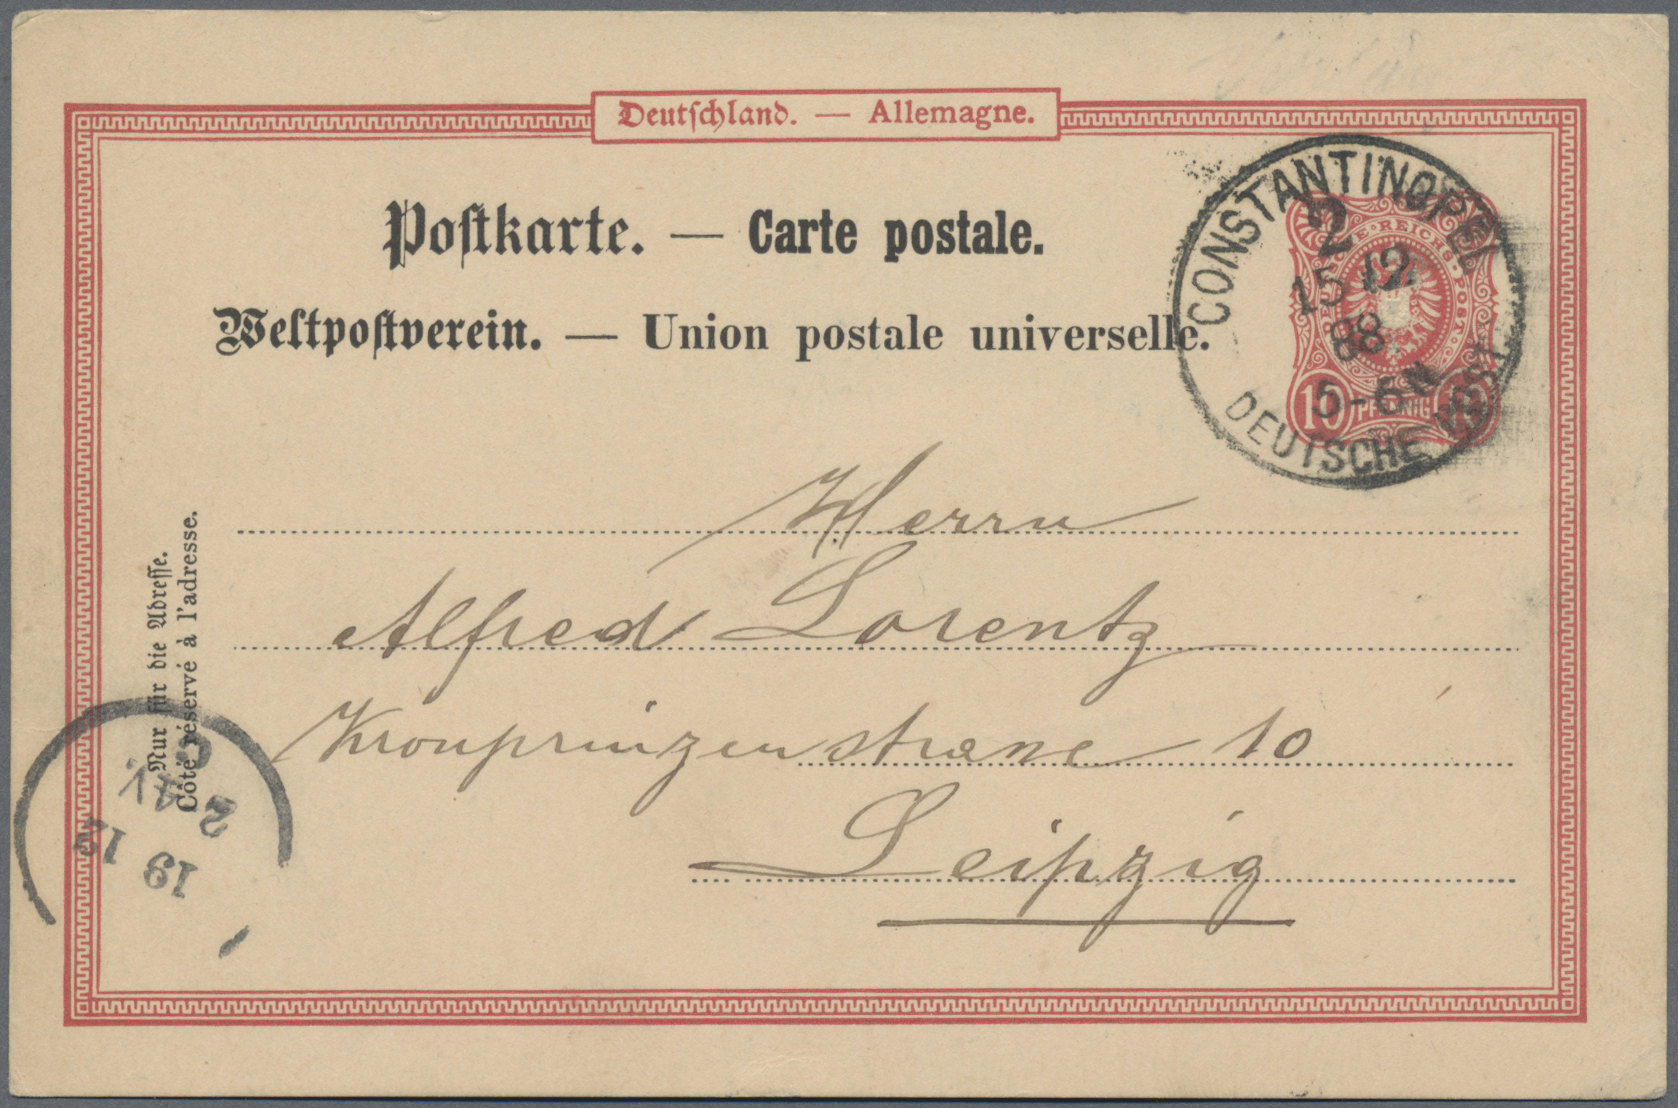 Deutschland. — Allemagne.
Postkarte. — Carte postale.
Weltpostverein. — Union postale universelle.
CONSTANTINOPEL
2
15 12
88
5-6N
DEUTSCHE POST
DEUTSCHE REICHS-POST
10 PFENNIG 10
Herrn
Alfred Lorentz
Kronprinzenstrasse 10
Leipzig
Nur für die Adresse.
Côté réservé à l'adresse.
19 12
2